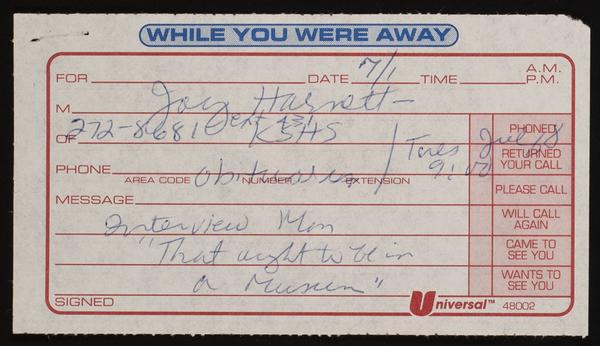 WHILE YOU WERE AWAY
FOR DATE 7/1 TIME A.M. P.M.
M. Joy Harnett -
OF 272-8681 ext 431 KSHS
PHONED
Tues July 8
9:00
RETURNED YOUR CALL
PHONE obituaries
AREA CODE NUMBER EXTENSION
PLEASE CALL
MESSAGE
WILL CALL AGAIN
Interview Mon
CAME TO SEE YOU
"That aught to be in
WANTS TO SEE YOU
a Museum"
SIGNED
Universal™ 48002